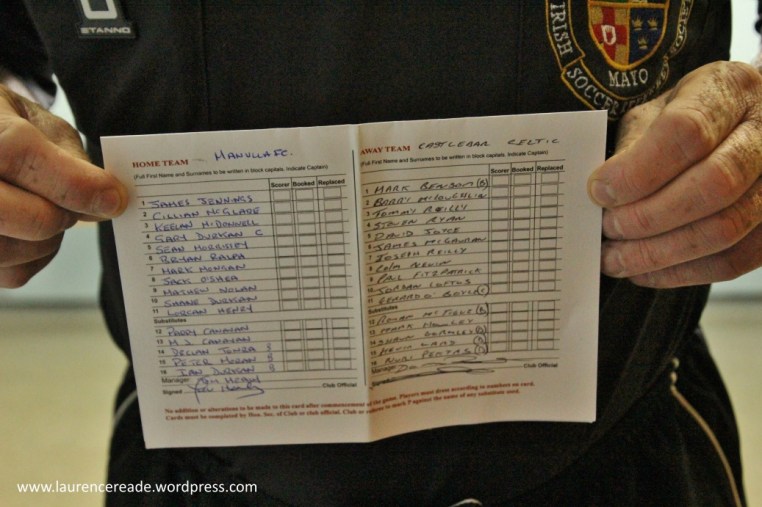 STANNO
IRISH SOCCER
MAYO
HOME TEAM MANULLA FC.
(Full First Name and Surnames to be written in block capitals. Indicate Captain)
Scorer Booked Replaced
1 JAMES JENNINGS
2 CILLIAN McGLADE
3 KEELAN McDONNELL
4 GARY DURKAN C
5 SEAN MORRISSEY
6 BRYAN RALPH
7 MARK MONGAN
8 JACK O'SHEA
9 MATHEW NOLAN
10 SHANE DURKAN
11 LORCAN HENRY
Substitutes
12 PADDY CANAVAN
13 M.J. CANAVAN
14 DECLAN S
15 PETER MORAN S
16 IAN DURKAN S
Manager:
Club Official
Signed
AWAY TEAM CASTLEBAR CELTIC
(Full First Name and Surnames to be written in block capitals. Indicate Captain)
Scorer Booked Replaced
1 MARK BENSON
2 BARRY McLOUGHLIN
3 TOMMY REILLY
4 STEVEN RYAN
5 DAVID JOYCE
6 JAMES McGAURAN
7 JOSEPH REILLY
8 COLM
9 PHIL FITZPATRICK
10 JORDAN LOFTUS
11 GERARD O' BOYLE
Substitutes
12
13 MARK
14
15
16
Manager:
Club Official
Signed
No addition or alterations to be made to this card after commencement of the game. Players must dress according to numbers on card.
Cards must be completed by Hon. Sec. of Club or club official. Club or referee to mark P against the name of any substitute used.
www.laurencereade.wordpress.com